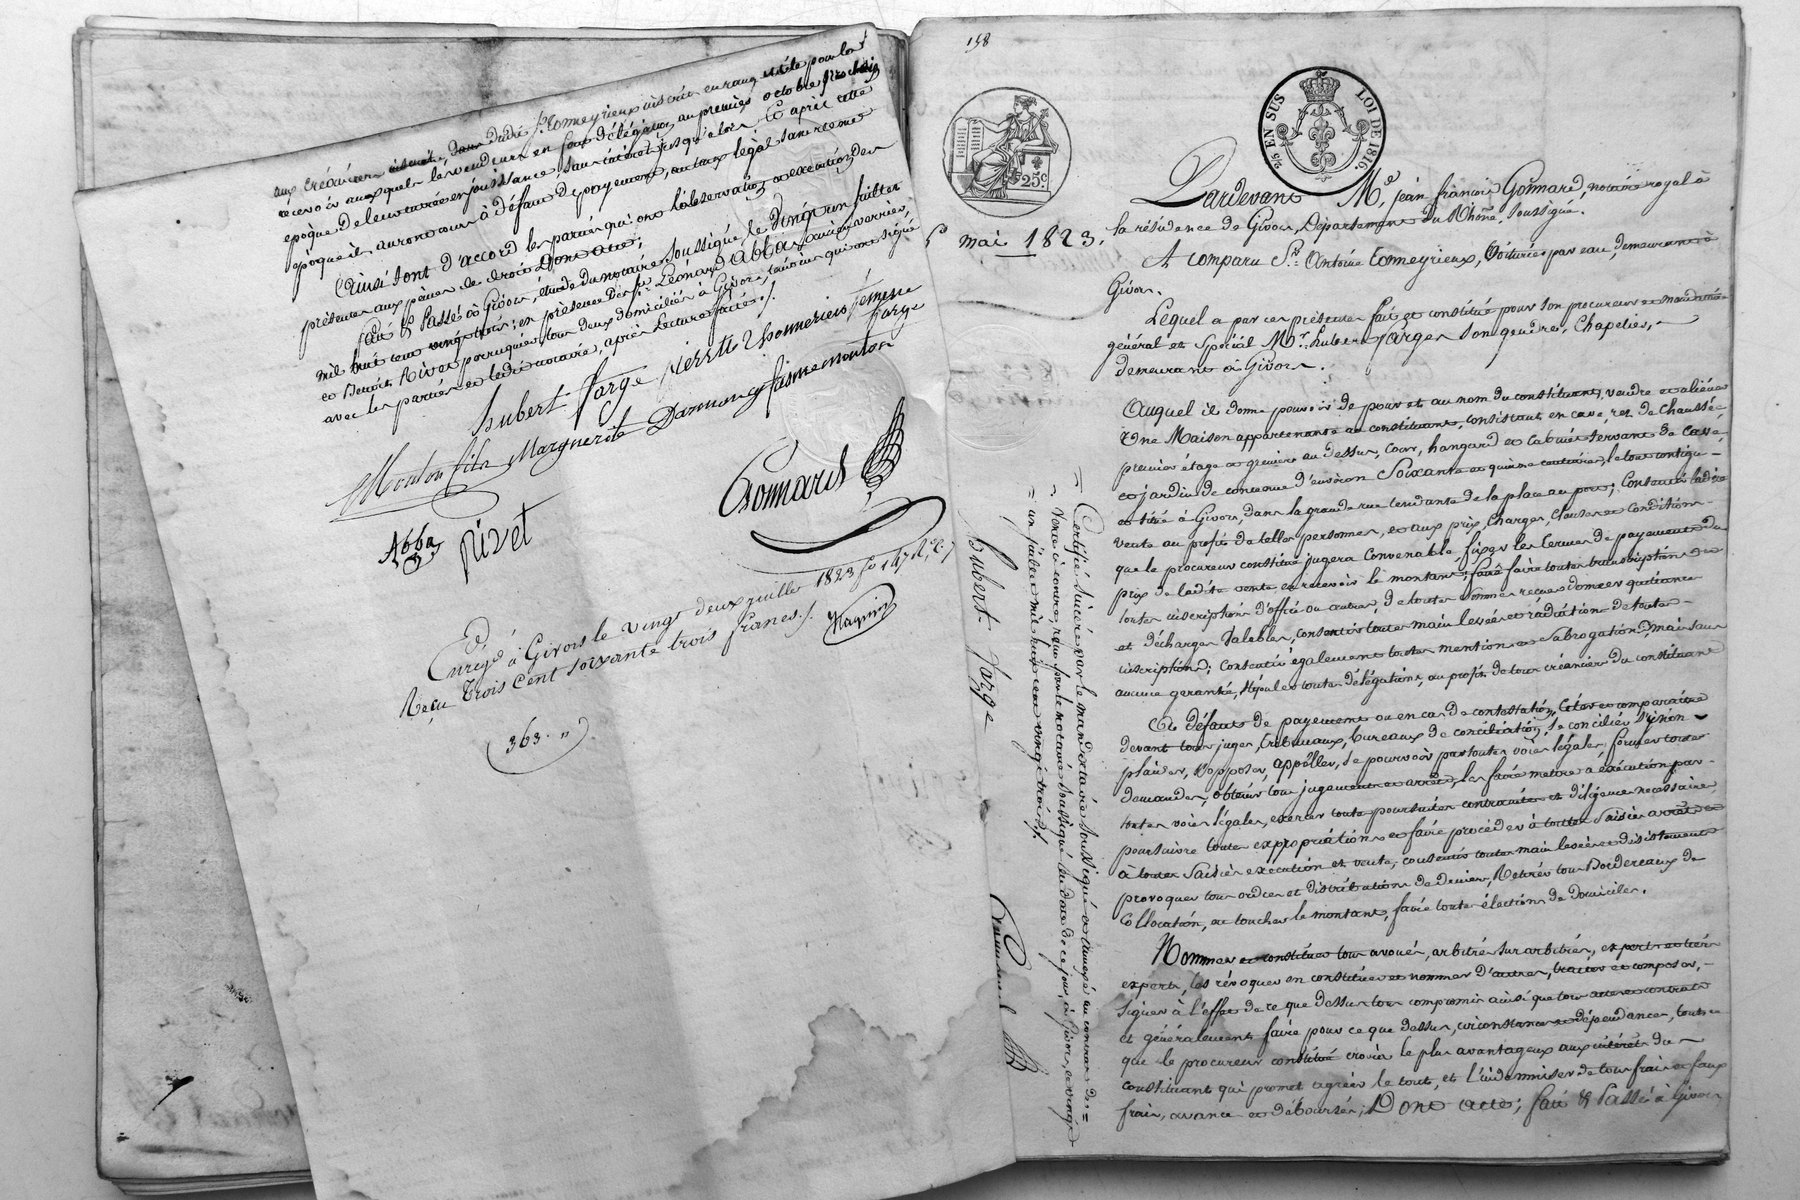 aux créanciers dudit Sr. Tonneyrieux inscrits en rang utile pour la
recevoir auxquels les vendeurs en font délégation, au premier octobre prochain
époque de leur entrée en jouissance, sans intérêt jusqu'alors, Et après cette
époque ils auront cours à défaut de payement, au taux légal sans retenue
Ainsi sont d'accord les parties qui ont l'observation et exécution des
présentes aux peines de droit; Dont acte;
fait & Passé à Givors, étude du notaire soussigné le vingt un juillet
mil huit cent vingt trois; en présence des Srs. Léonard Abba, ancien verrier,
et Benoit Rivet perruquier tous deux domiciliés à Givors, témoins qui ont signé
avec les parties et ledit notaire, après lecture faite ./.
hubert farge pierrette thonnerieux femme
farge
Mouton fils Marguerite Darmancy faime mouton
Abba
Rivet
Gonnard
Enregé. à Givors le vingt deux juillet 1823 fo 147
Reçu trois cent soixante trois francs ./.
(363. ")
158
25 c.
25 EN SUS
LOI DE 1816.
5 mai 1823.
Pardevant Me. jean françois Gonnard, notaire royal à
la résidence de Givors, Département du Rhône soussigné.
A comparu Sr. Antoine Tonneyrieux, Voiturier par eau, demeurant à
Givors.
Lequel a par ces présentes fait et constitué pour son procureur et mandataire
général et spécial Mr. hubert farges son gendre, chapelier,
demeurant à Givors.
Auquel il donne pouvoir de pour et au nom du constituant, vendre et aliéner
Une Maison appartenante au constituant, consistant en cave, rez de chaussée
premier étage et grenier au dessus, Cour, hangard et cabinet servant de cave,
et jardin de contenue d'environ Soixante et quinze centiares, le tout contigu
et situé à Givors, dans la grande rue tendante de la place au port; Consentir ladite
vente au profit de telles personnes, et aux prix, charges, clauses et conditions
que le procureur constitué jugera convenable, fixer les termes de payement du
prix de ladite vente, en recevoir le montant; faire faire toutes transcriptions ou
toutes inscriptions d'office ou autres; de toutes sommes reçues donner quittance
et décharges valables, consentir toutes main levées et radiations de toutes
inscriptions; consentir également toutes mentions et subrogations, mais sans
aucune garantie, stipuler toutes délégations, au profit de tous créanciers du constituant
Et à défaut de payement ou en cas de contestation, Citer et comparaître
devant tous juges, tribunaux, bureaux de conciliation, se concilier sinon
plaider, s'opposer, appeller, se pourvoir par toutes voies légales, former toutes
demandes, obtenir tous jugements et arrêts, les faire mettre à exécution par
toutes voies légales, exercer toutes poursuites contraintes et diligences nécessaires
poursuivre toutes expropriations et faire procéder à toutes saisies arrêts et
à toutes saisies exécution et vente, consentir toutes main levées et désistements
provoquer tous ordres et distributions de deniers, Retirer tous Bordereaux de
Collocation, en toucher le montant, faire toutes élections de domicile.
Nommer et constituer tous avoués, arbitres sur arbitres, experts et tiers
experts, les révoquer en constituer et nommer d'autres, traiter et composer,
signer à l'effet de ce que dessus tous compromis ainsi que tous actes et contrats
et généralement faire pour ce que dessus, circonstances et dépendances, tout ce
que le procureur constitué croira le plus avantageux aux intérêts du
constituant qui promet agréer le tout, et l'indemniser de tous frais et faux
frais, avances et déboursés; Dont acte; fait & Passé à Givors
= Certifié sincère par le mandataire soussigné et annexé au contrat de =
= Vente ci contre, reçu par le notaire soussigné en date de ce jour, à Givors, ce vingt
= un juillet mil huit cent vingt trois ./.
hubert farge
Gonnard